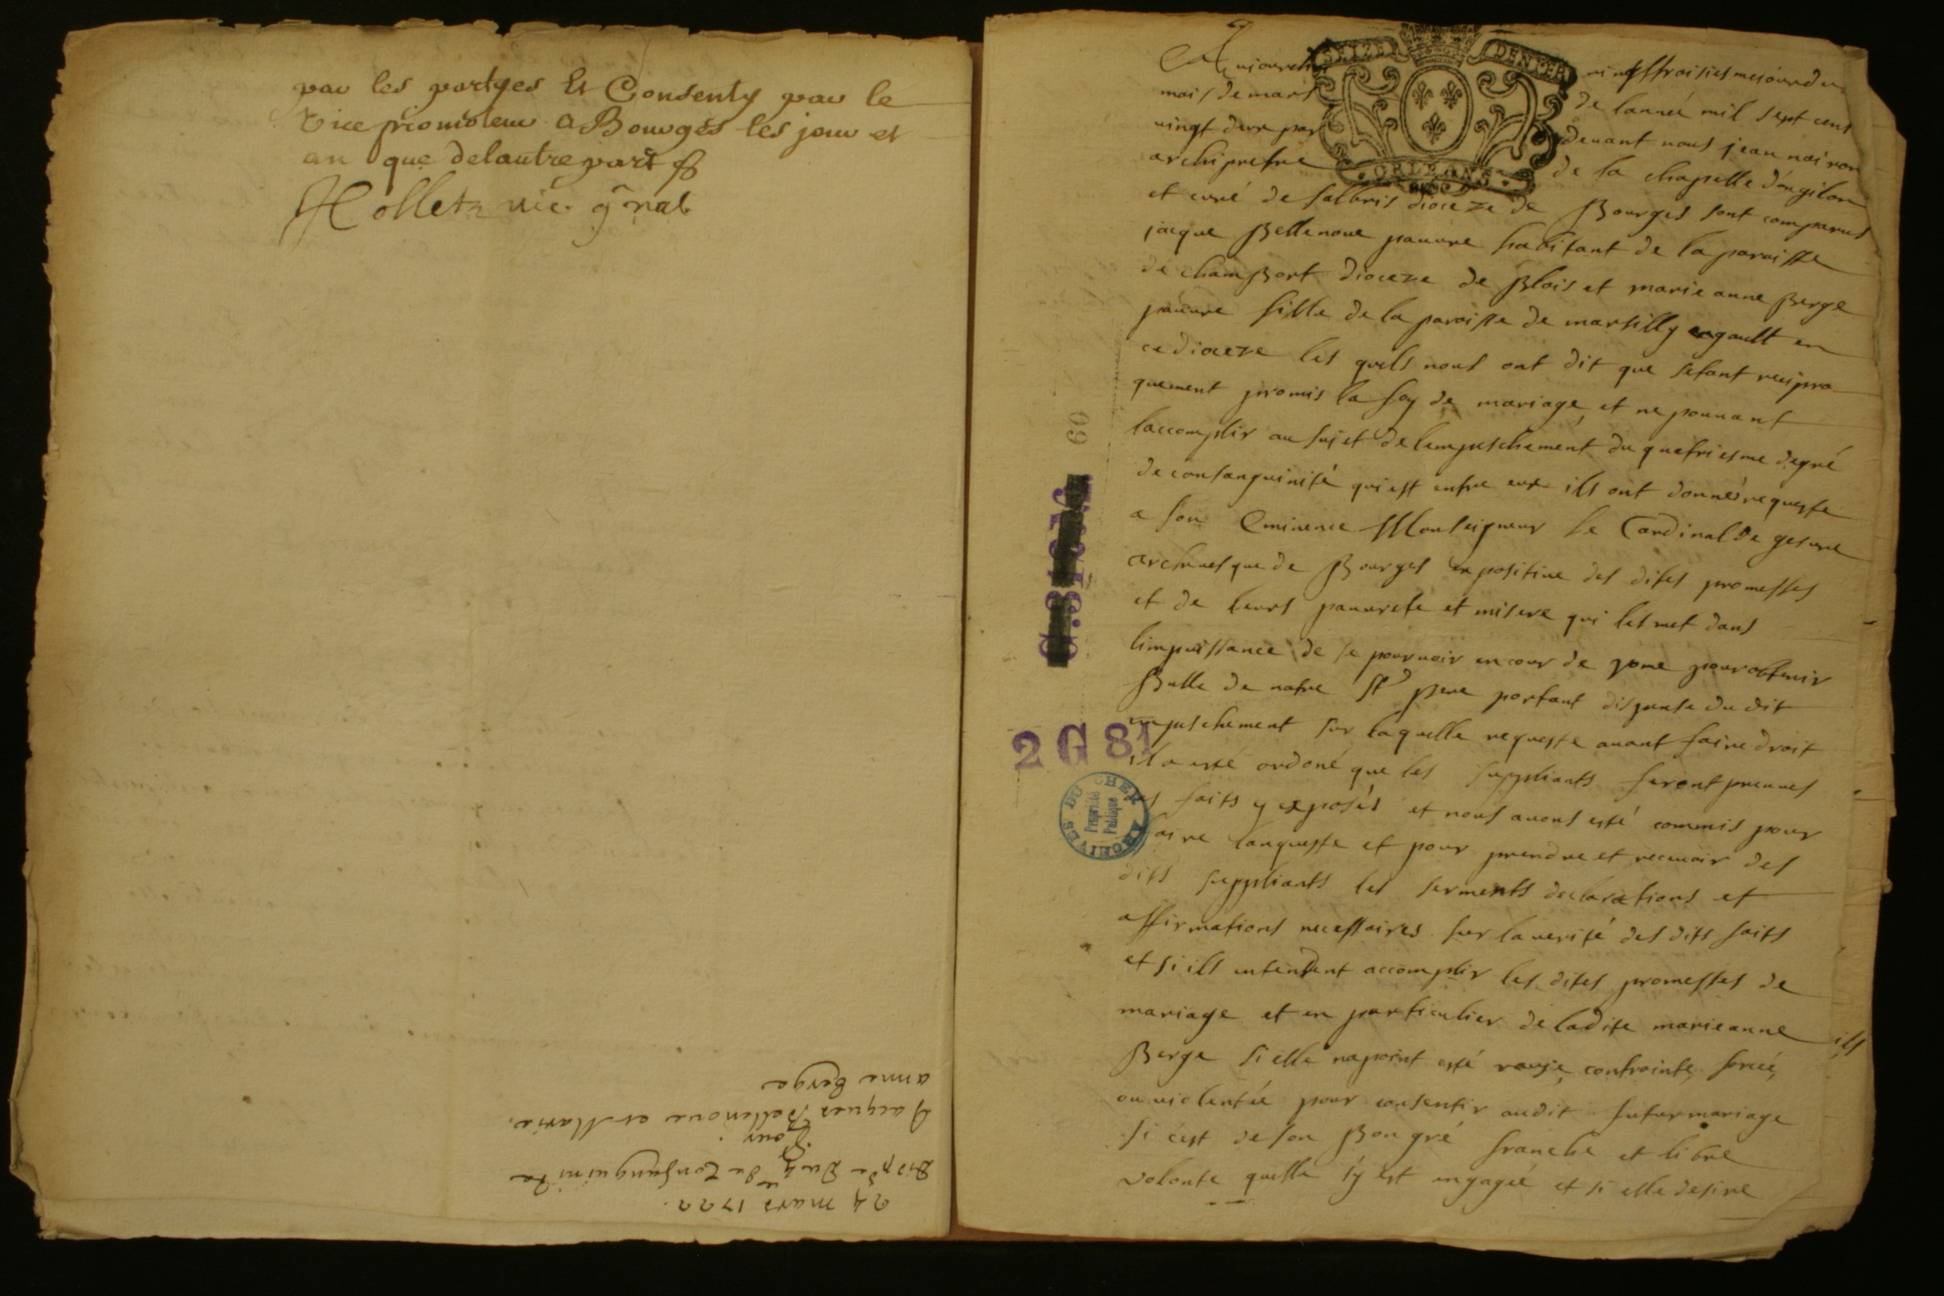 par les partyes Et Consenty par le
vice promoteur a Bourges les jour et
an que delautre part
Hollet vic. g̃ral
24 mars 1722.
Disp̃e Du 4e de Consanguinite
Pour
Jacques Bellenoue et Marie
anne Berge
SEIZE DENIER
ORLEANS
Aujourdhui vingttroisiesme jour du
mois de mars de lanneé mil sept cens
vingt deux par devant nous jean nairon
archiprestre de la chapelle d'angilon
et curé de salbris dioceze de Bourges sont comparus
jacque Bellenoue pauvre habitant de la paroisse
de chamBort dioceze de Blois et marie anne Berge
pauvre fille de la paroisse de marsilly engault en
ce dioceze les quels nous ont dit que sestant recipro
quement promis la foy de mariage et ne pouvant
laccomplir au sujet de lempeschement du quatriesme degré
de consanguinité qui est entre eux ils ont donné requeste
a son Eminence Monseigneur le Cardinal de gesvre
archevesque de Bourges expositive des dites promesses
et de leurs pauvrete et misere qui les met dans
limpuissance de se pourvoir en cour de rome pour obtenir
Bulle de notre St pere portant dispense du dit
empeschement sur laquelle requeste avant faire droit
il a esté ordoné que les suppliants feront preuves
es faits y exposés et nous avons esté commis pour
faire lanqueste et pour prendre et recevoir des
dits suppliants les serments declarations et
affirmations necessaires sur la verité des dits faits
et si ils entendent accomplir les dites promesses de
mariage et en particulier de ladite marieanne
Berge si elle na point esté contrainte forcée
ou violentée pour consentir audit futur mariage
si cest de son Bon gré franche et libre
volonte quelle sy est engagée et si elle desire
ils
60
2 G 81
ARCHIVES DU CHER
Propriété
Publique